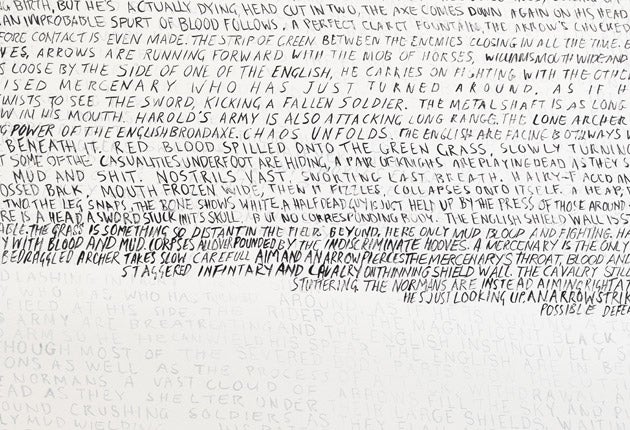 G BIRTH, BUT HE'S ACTUALLY DYING, HEAD CUT IN TWO, THE AXE COMES DOWN AGAIN ON HIS HEAD
AN IMPROBABLE SPURT OF BLOOD FOLLOWS, A PERFECT CLARET FOUNTAIN, THE ARROW'S CHUCKED
FORE CONTACT IS EVEN MADE. THE STRIP OF GREEN BETWEEN THE ENEMIES CLOSING IN ALL THE TIME.
VES, ARROWS ARE RUNNING FORWARD WITH THE MOB OF HORSES, WILLIAMS MOUTH WIDE AND
S LOOSE BY THE SIDE OF ONE OF THE ENGLISH, HE CARRIES ON FIGHTING WITH THE OTHE
ISED MERCENARY WHO HAS JUST TURNED AROUND. AS IF H
WISTS TO SEE THE SWORD, KICKING A FALLEN SOLDIER. THE METAL SHAFT IS AS LONG
W IN HIS MOUTH. HAROLD'S ARMY IS ALSO ATTACKING LONG RANGE. THE LONE ARCHER
G POWER OF THE ENGLISH BROADAXE. CHAOS UNFOLDS. THE ENGLISH ARE FACING BOTH WAYS
BENEATH IT. RED BLOOD SPILLED ONTO THE GREEN GRASS, SLOWLY TURNING
T SOME OF THE CASUALTIES UNDERFOOT ARE HIDING, A PAIR OF KNIGHTS ARE PLAYING DEAD AS THEY S
MUD AND SHIT. NOSTRILS VAST, SNORTING LAST BREATH. HAIRY-FACED AN
OSSED BACK. MOUTH FROZEN WIDE, THEN IT FIZZLES, COLLAPSES ONTO ITSELF. A HEAP,
TWO THE LEG SNAPS, THE BONE SHOWS WHITE, A HALF DEAD GUY IS JUST HELD UP BY THE PRESS OF THOSE AROUND
RE IS A HEAD, A SWORD STUCK IN ITS SKULL, BUT NO CORRESPONDING BODY. THE ENGLISH SHIELD WALL IS
ABLE. THE GRASS IS SOMETHING SO DISTANT IN THE FIELDS BEYOND, HERE ONLY MUD BLOOD AND FIGHTING. HA
Y WITH BLOOD AND MUD. CORPSES ALL OVER POUNDED BY THE INDISCRIMINATE HOOVES. A MERCENARY IS THE ONLY
BEDRAGGLED ARCHER TAKES SLOW CAREFULL AIM AND AN ARROW PIERCES THE MERCENARY'S THROAT, BLOOD AND
STAGGERED INFINTARY AND CAVALRY ON THINNING SHIELD WALL. THE CAVALRY STILL
STUTTERING. THE NORMANS ARE INSTEAD AIMING RIGHT AT
HE'S JUST LOOKING UP AN ARROW STRIK
POSSIBLE DEFE
WHO HAS TURNED AROUN
FIELD AT HIS SIDE THE
S ARMY ARE BREATH AND THE
ARMS SO HE CAN WIELD HIS THE ENGLISH INSTINCTIVELY
HOUGH MOST OF THE SEVERED
ONS AS WELL AS THE PROCESS PARTS
NORMANS A VAST CLOUD OF
EAD AS THEY SHELTER UNDER ARROWS
OUND CRUSHING SOLDIERS AS THE SKY AND
LY MUD WIELDING LARGE SHIELDS, WAITIN